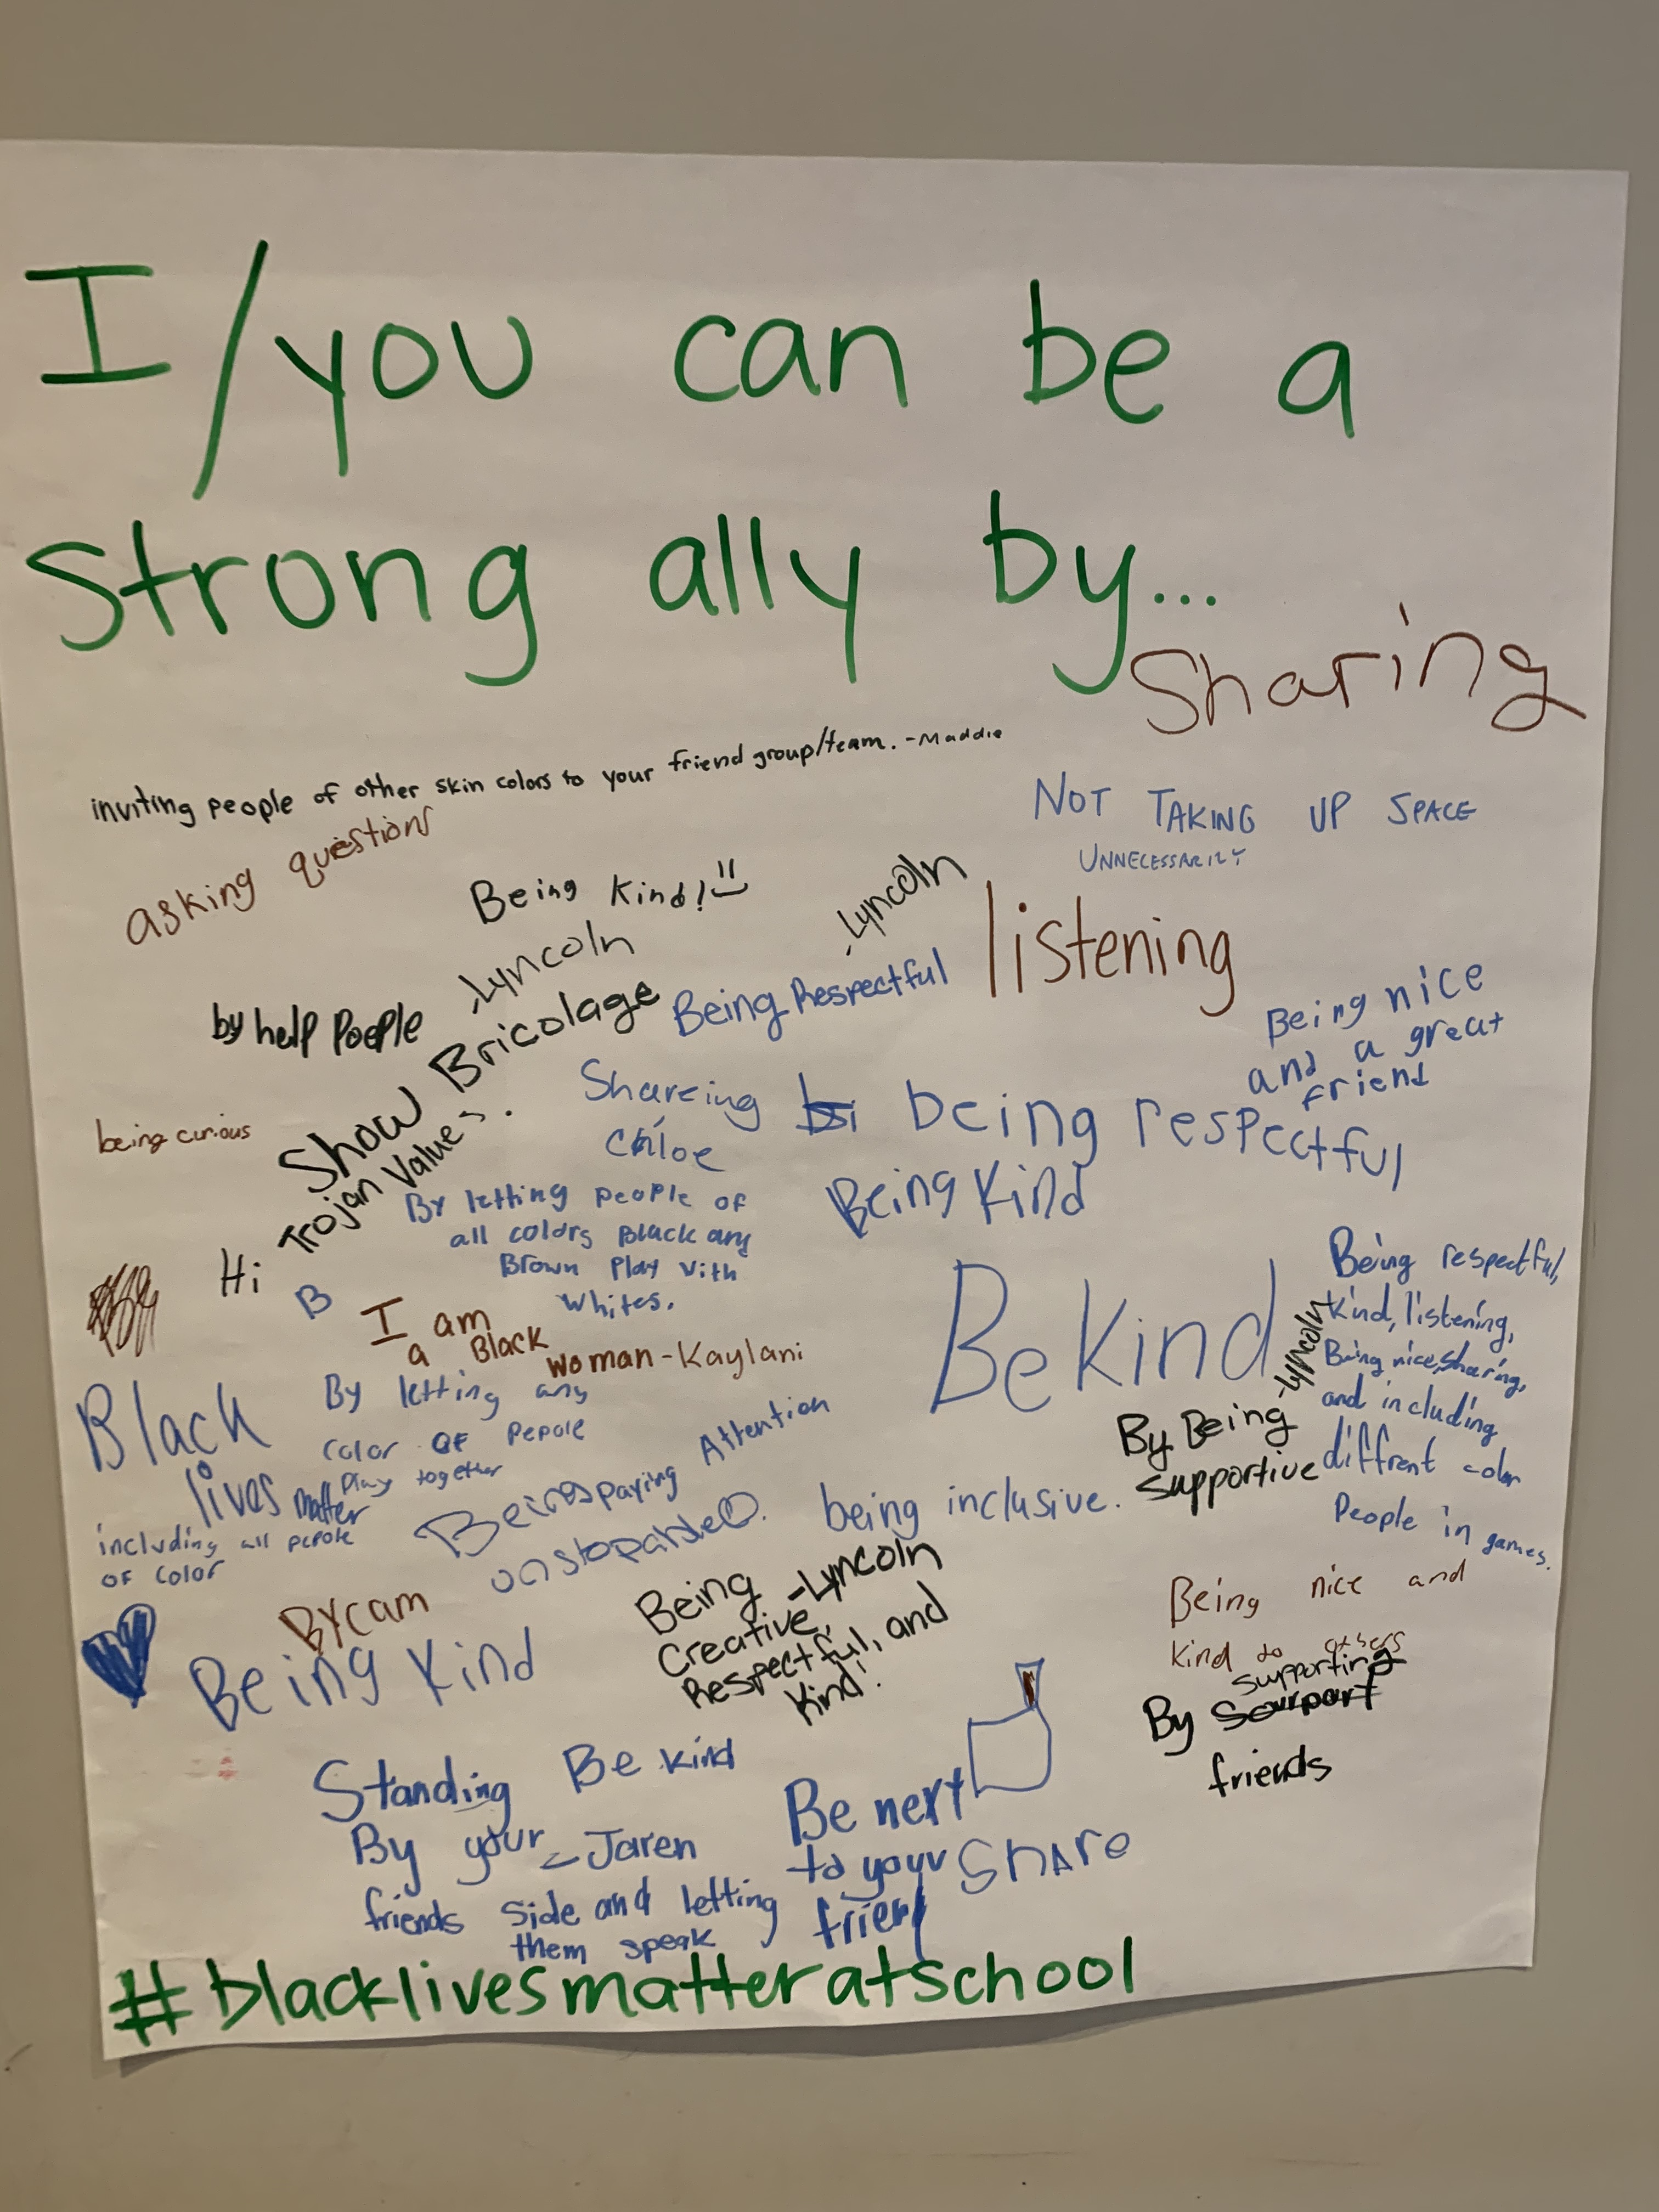 I/you can be a
strong ally by...
Sharing
inviting people of other skin colors to your friend group/team. -Maddie
NOT TAKING UP SPACE
UNNECESSARILY
asking questions
Being Kind!
-Lyncoln
-Lyncoln
Being Respectful
listening
by help Poeple
Show Bricolage
Trojan Values.
Being nice
and a great
friend
being curious
Shareing
Chloe
being respectful
Being Kind
By letting people of
all colors Black any
Brown Play with
whites.
Hi
B
I am
a Black
woman-Kaylani
Be kind
Being respectful,
kind, listening,
Being nice, sharing,
and including
diffrent color
People in games.
-Lyncoln
By Being
supportive
Black
lives
matter
By letting any
color OF pepole
Play together
paying Attention
unstopabled
being inclusive.
including all pepole
OF color
BYcam
Being Kind
Being -Lyncoln
Creative,
Respectful, and
Kind!
Being nice and
kind to others
supporting
By Sourport
friends
Standing
By your
friends side and letting
them speak
Be kind
-Jaren
Be next
to your
friend
SHARe
#blacklivesmatteratschool